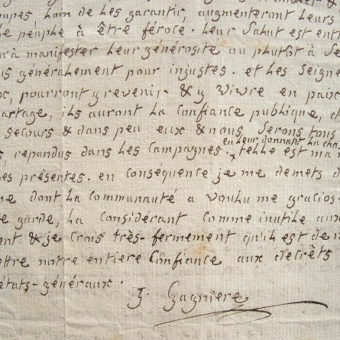 loin de les garantir, augmenteront leurs
le peuple à être féroce. Leur salut est ent
à manifester leur générosité ou plutôt à se
us généralement pour injustes. et les seigne
oc, pourront y revenir & y vivre en paix
artage, ils auront la confiance publique, d
secours & dans peu eux & nous serons tous
en leur donnant la cha
s, repandus dans les campagnes. telle est ma
es présentes. en conséquence je me demets d
me dont la communauté a voulu me gracios
e garde, la considérant comme inutile aux
ent & je crois très-fermement qu'il est de n
ettre notre entiere confiance aux decrêts
états-généraux.
J. Gagniere